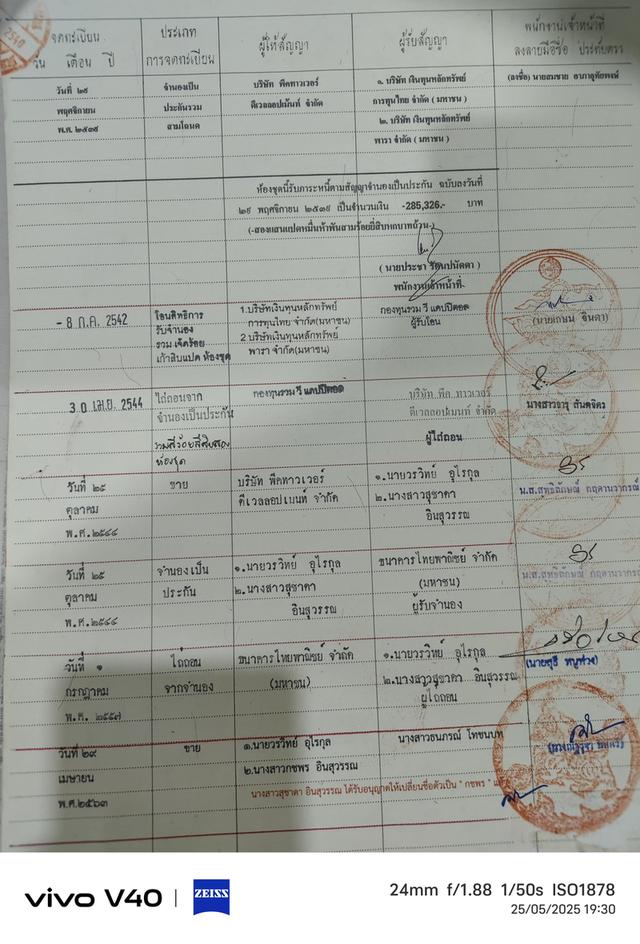 จดทะเบียน
วัน เดือน ปี
ประเภท
การจดทะเบียน
ผู้ให้สัญญา
ผู้รับสัญญา
พนักงานเจ้าหน้าที่
ลงลายมือชื่อ ประทับตรา
2540
วันที่ ๒๙
พฤศจิกายน
พ.ศ. ๒๕๓๙
จำนองเป็น
ประกันรวม
สามโฉนด
บริษัท พีคทาวเวอร์
ดีเวลลอปเม้นท์ จำกัด
๑. บริษัท เงินทุนหลักทรัพย์
การทุนไทย จำกัด ( มหาชน )
๒. บริษัท เงินทุนหลักทรัพย์
พารา จำกัด ( มหาชน )
(ลงชื่อ) นายสมชาย อาภาอุทัยพงษ์
ห้องชุดนี้รับภาระหนี้ตามสัญญาจำนองเป็นประกัน ฉบับลงวันที่
๒๙ พฤศจิกายน ๒๕๓๙ เป็นจำนวนเงิน -285,326.- บาท
(-สองแสนแปดหมื่นห้าพันสามร้อยยี่สิบหกบาทถ้วน-)
( นายประชา รัตนปนัดดา )
พนักงานเจ้าหน้าที่
- 8 ก.ค. 2542
โอนสิทธิการ
รับจำนอง
รวม เจ็ดร้อย
เก้าสิบแปด ห้องชุด
1.บริษัทเงินทุนหลักทรัพย์
การทุนไทย จำกัด(มหาชน)
2 บริษัทเงินทุนหลักทรัพย์
พารา จำกัด(มหาชน)
กองทุนรวม วี แคปปิตอล
ผู้รับโอน
(นายเกษม จินดา)
30 เม.ย. 2544
ไถ่ถอนจาก
จำนองเป็นประกัน
รวมสี่ร้อยสี่สิบสอง
ห้องชุด
กองทุนรวม วี แคปปิตอล
บริษัท พีค ทาวเวอร์
ดีเวลลอปเมนท์ จำกัด
ผู้ไถ่ถอน
นางสาวจารุ สันตจิตร
วันที่ ๒๕
ตุลาคม
พ.ศ.๒๕๔๔
ขาย
บริษัท พีคทาวเวอร์
ดีเวลลอปเมนท์ จำกัด
๑.นายวรวิทย์ อุไรกุล
๒.นางสาวสุชาดา
อินสุวรรณ
น.ส.สุทธิลักษณ์ กฤดานวากรณ์
วันที่ ๒๕
ตุลาคม
พ.ศ.๒๕๔๔
จำนองเป็น
ประกัน
๑.นายวรวิทย์ อุไรกุล
๒.นางสาวสุชาดา
อินสุวรรณ
ธนาคารไทยพาณิชย์ จำกัด
(มหาชน)
ผู้รับจำนอง
น.ส.สุทธิลักษณ์ กฤดานวากรณ์
วันที่ ๑
กรกฎาคม
พ.ศ. ๒๕๕๗
ไถ่ถอน
จากจำนอง
ธนาคารไทยพาณิชย์ จำกัด
(มหาชน)
๑.นายวรวิทย์ อุไรกุล
๒.นางสาวสุชาดา อินสุวรรณ
ผู้ไถ่ถอน
(นายสุธี หนูห่วง)
วันที่ ๒๙
เมษายน
พ.ศ.๒๕๖๓
ขาย
๑.นายวรวิทย์ อุไรกุล
๒.นางสาวกชพร อินสุวรรณ
นางสาวธนภรณ์ โทขนบท
นางสาวสุชาดา อินสุวรรณ ได้รับอนุญาตให้เปลี่ยนชื่อตัวเป็น " กชพร "
vivo V40
ZEISS
24mm f/1.88 1/50s ISO1878
25/05/2025 19:30